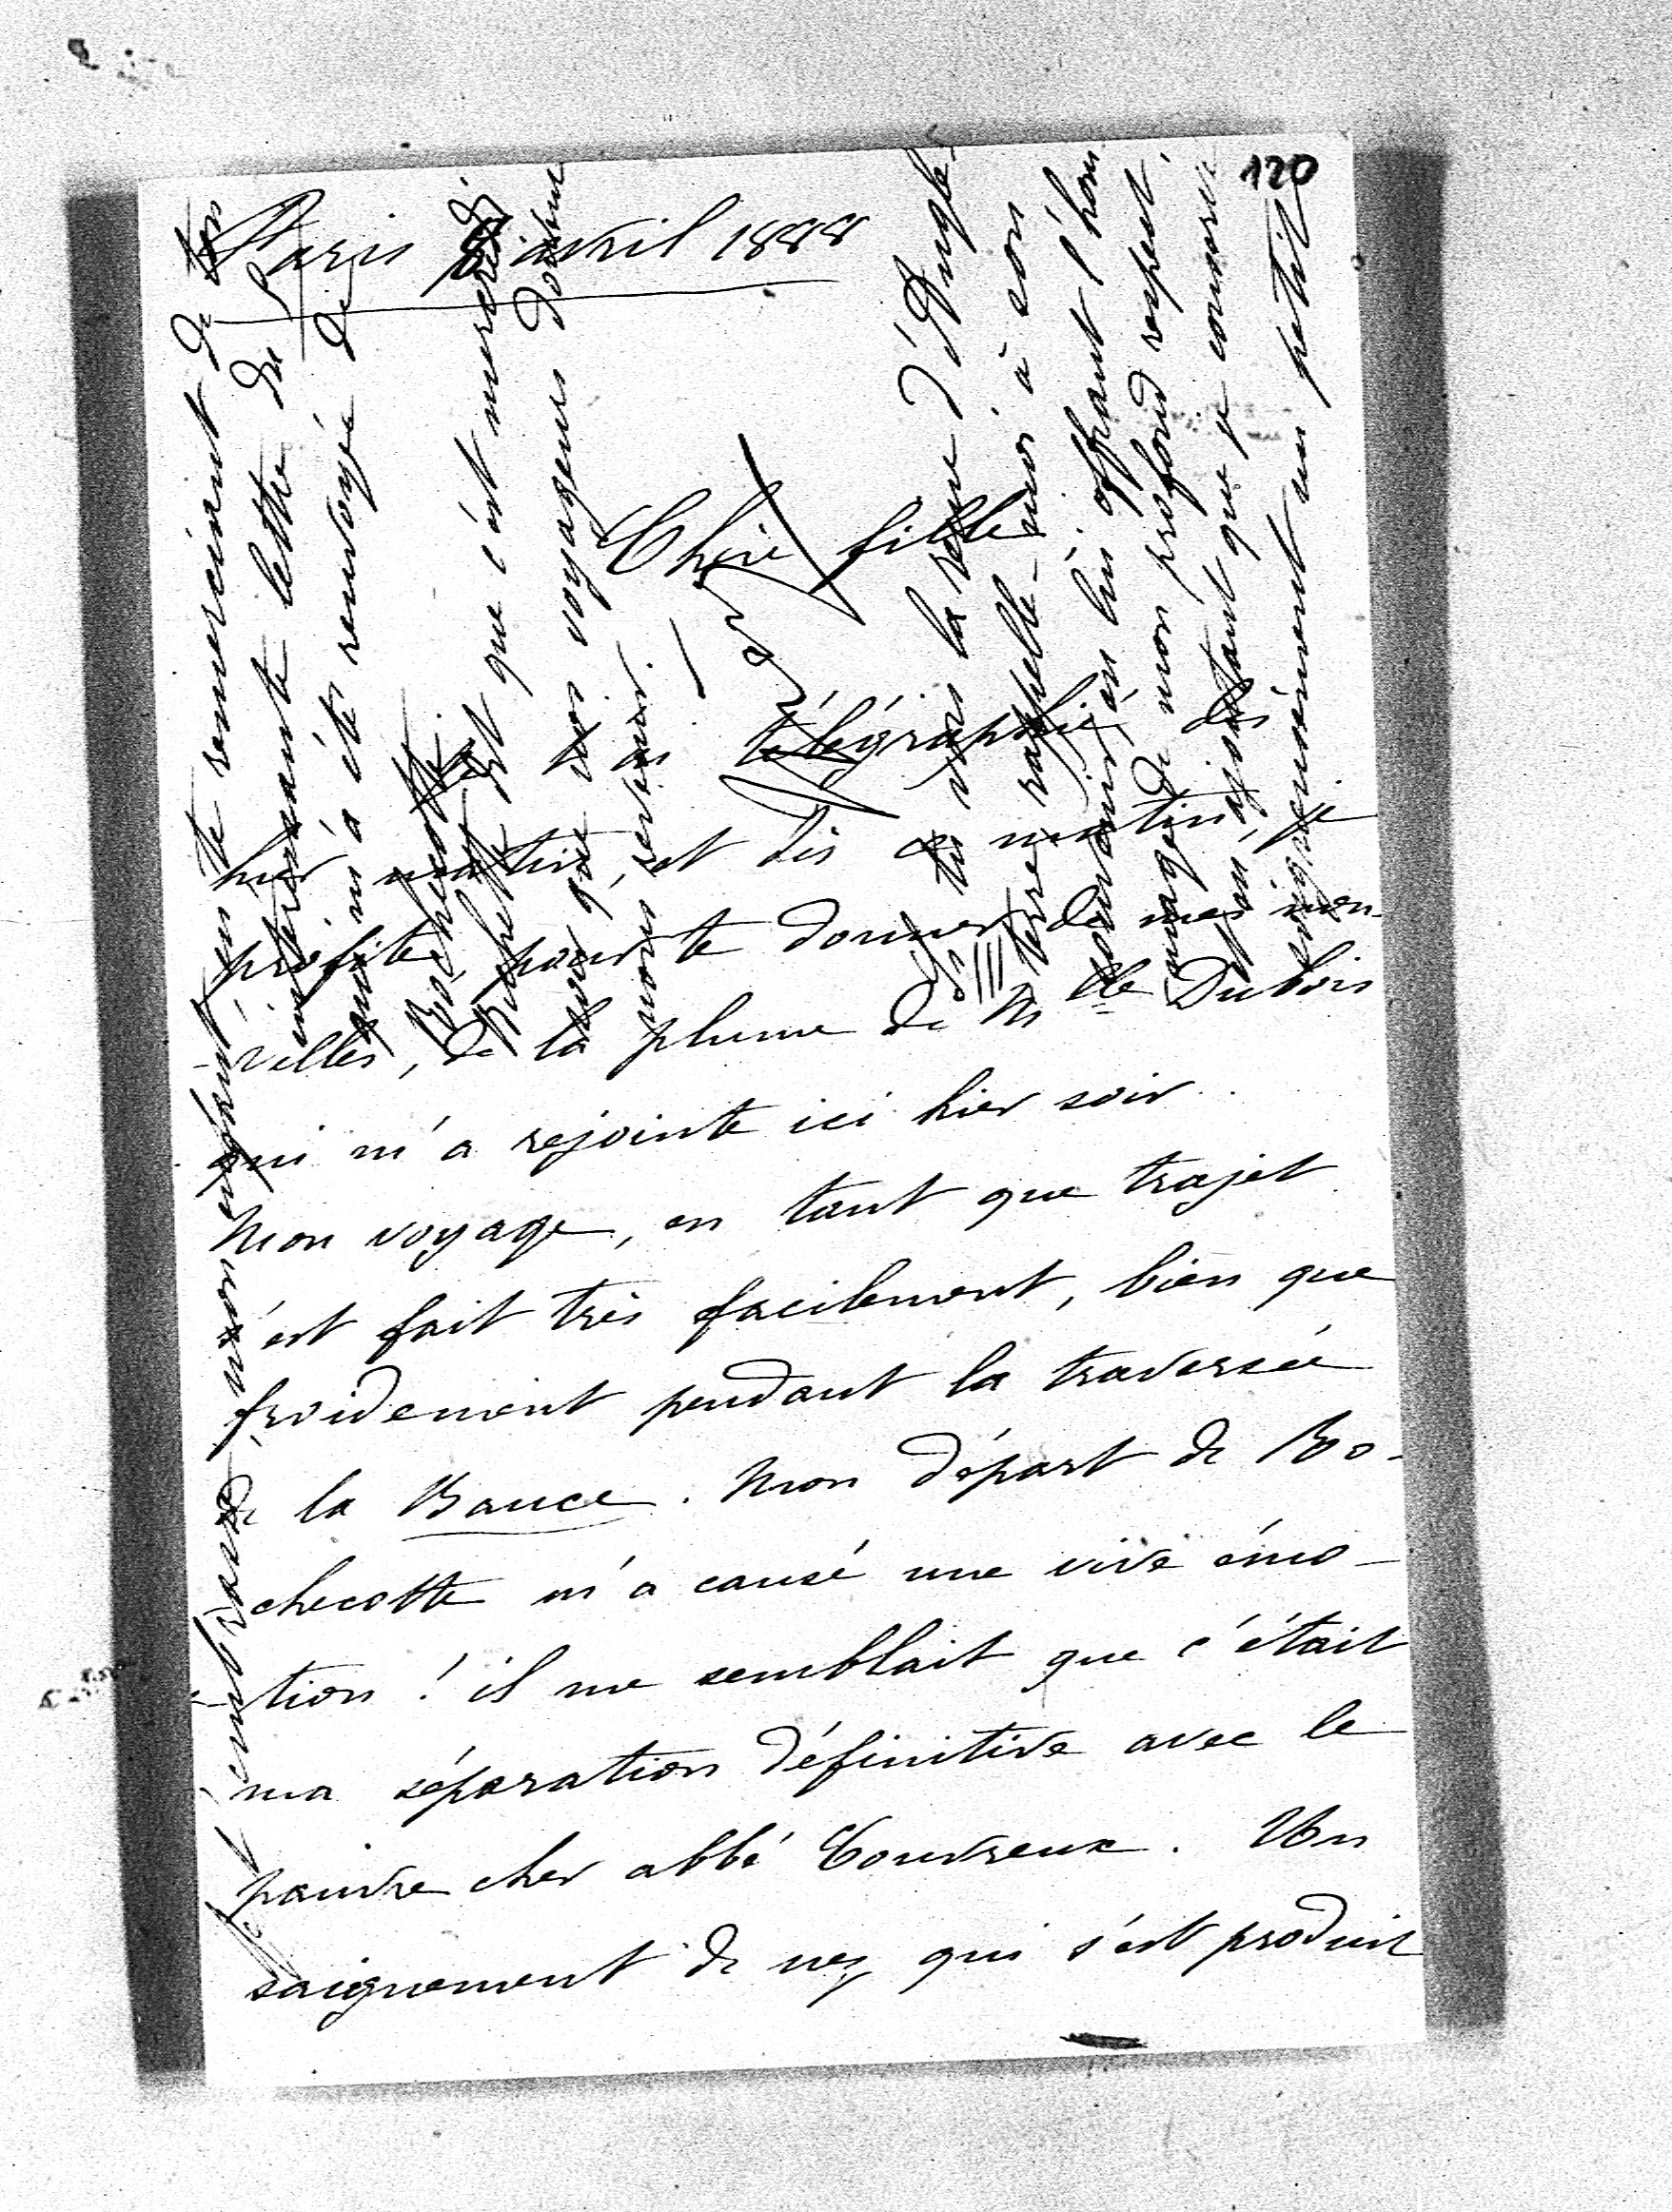 120
Paris 8 avril 1888
Chère fille
Je t'ai télégraphié dès
hier matin, et dès ce matin, je
profite, pour te donner de mes nou-
-velles, de la plume de Mlle Dubois
qui m'a rejointe ici hier soir.
Mon voyage, en tant que trajet
s'est fait très facilement, bien que
froidement pendant la traversée
de la Bauce. Mon départ de Ro-
-checotte m'a causé une vive émo-
-tion ! il me semblait que c'était
ma séparation définitive avec le
pauvre cher abbé Couvreux. Un
saignement de nez qui s'est produit
mon enfant, en te remerciant de ton
intéressante lettre du
qui m'a été renvoyée de
Rochecotte.
que c'est mercredi
que nos voyageurs doivent
nous revenir.
Si tu vois la reine d'Angle-
terre rappelle-moi à son
souvenir en lui offrant l'hom-
mage de mon profond respect,
en ajoutant que je conserve
soigneusement un petit